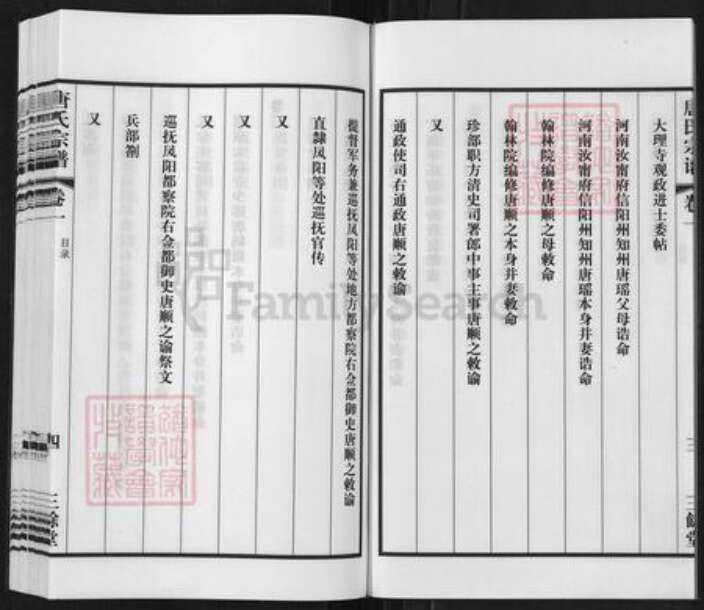 唐氏宗谱 卷一 三 三餘堂
大理寺观政进士委帖
河南汝甯府信阳州知州唐瑶父母诰命
河南汝甯府信阳州知州唐瑶本身并妻诰命
翰林院编修唐顺之母敕命
翰林院编修唐顺之本身并妻敕命
珍部职方清吏司署郎中事主事唐顺之敕谕
又
通政使司右通政唐顺之敕谕
提督军务兼巡抚凤阳等处地方都察院右佥都御史唐顺之敕谕
直隸凤阳等处巡抚官传
又
又
又
巡抚凤阳都察院右佥都御史唐顺之谕祭文
兵部劄
又
唐氏宗谱 卷一 目录 四 三餘堂
FamilySearch